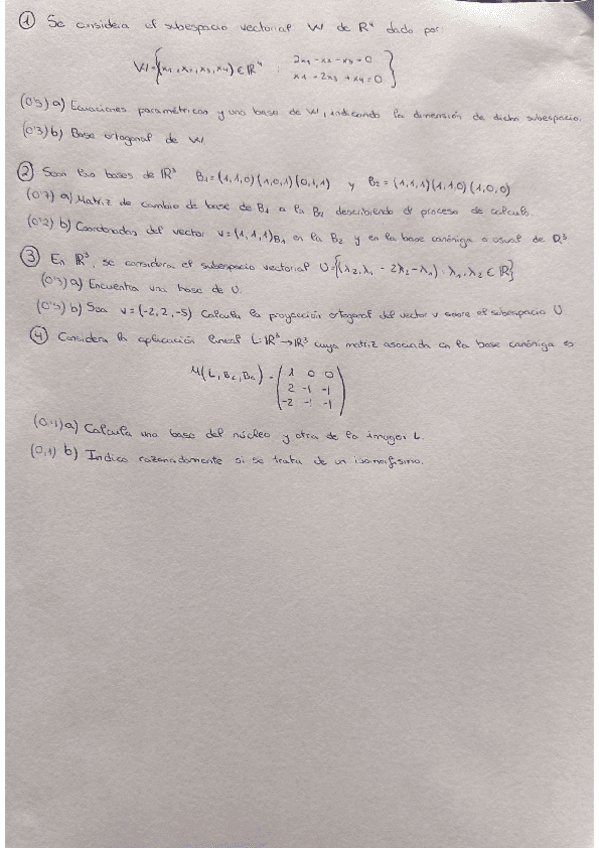 ① Se considera el subespacio vectorial W de R⁴ dado por:
W={(x₁,x₂,x₃,x₄) ∈ R⁴ : 2x₁ - x₂ - x₃ = 0
x₁ - 2x₃ + x₄ = 0}
(0'5) a) Ecuaciones paramétricas y una base de W, indicando la dimensión de dicho subespacio.
(0'3) b) Base ortogonal de W
② Sean las bases de R³ B₁=(1,1,0)(1,0,1)(0,1,1) y B₂=(1,1,1)(1,1,0)(1,0,0)
(0'7) a) Matriz de cambio de base de B₁ a la B₂ describiendo el proceso de calculo.
(0'2) b) Coordenadas del vector v=(1,1,1)B₁ en la B₂ y en la base canóniga o usual de R³
③ En R³, se considera el subespacio vectorial U={(λ₂, λ₁ - 2λ₂, -λ₁) : λ₁, λ₂ ∈ R}
(0'5) a) Encuentra una base de U.
(0'5) b) Sea v=(-2,2,-5) Calcula la proyección ortogonal del vector v sobre el subespacio U
④ Considera la aplicación lineal L:R³→R³ cuya matriz asociada en la base canóniga es
M(L,Bc,Bc) = (1 0 0
2 -1 -1
-2 -1 -1)
a) Calcula una base del núcleo y otra de la imagen L.
(0,1) b) Indica razonadamente si se trata de un isomorfismo.